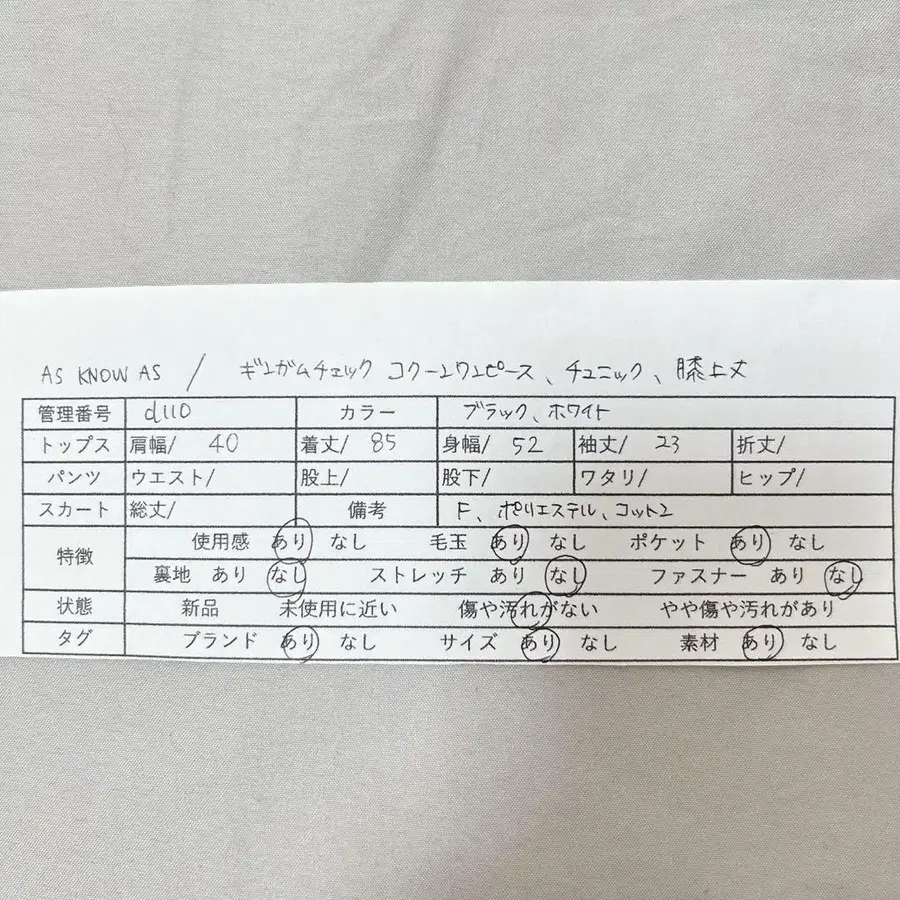 AS KNOW AS / ギンガムチェック コクーンワンピース、チュニック、膝上丈
管理番号 d110 カラー ブラック、ホワイト
トップス 肩幅/ 40 着丈/ 85 身幅/ 52 袖丈/ 23 折丈/
パンツ ウエスト/ 股上/ 股下/ ワタリ/ ヒップ/
スカート 総丈/ 備考 F、ポリエステル、コットン
特徴 使用感 あり なし 毛玉 あり なし ポケット あり なし
裏地 あり なし ストレッチ あり なし ファスナー あり なし
状態 新品 未使用に近い 傷や汚れがない やや傷や汚れがあり
タグ ブランド あり なし サイズ あり なし 素材 あり なし